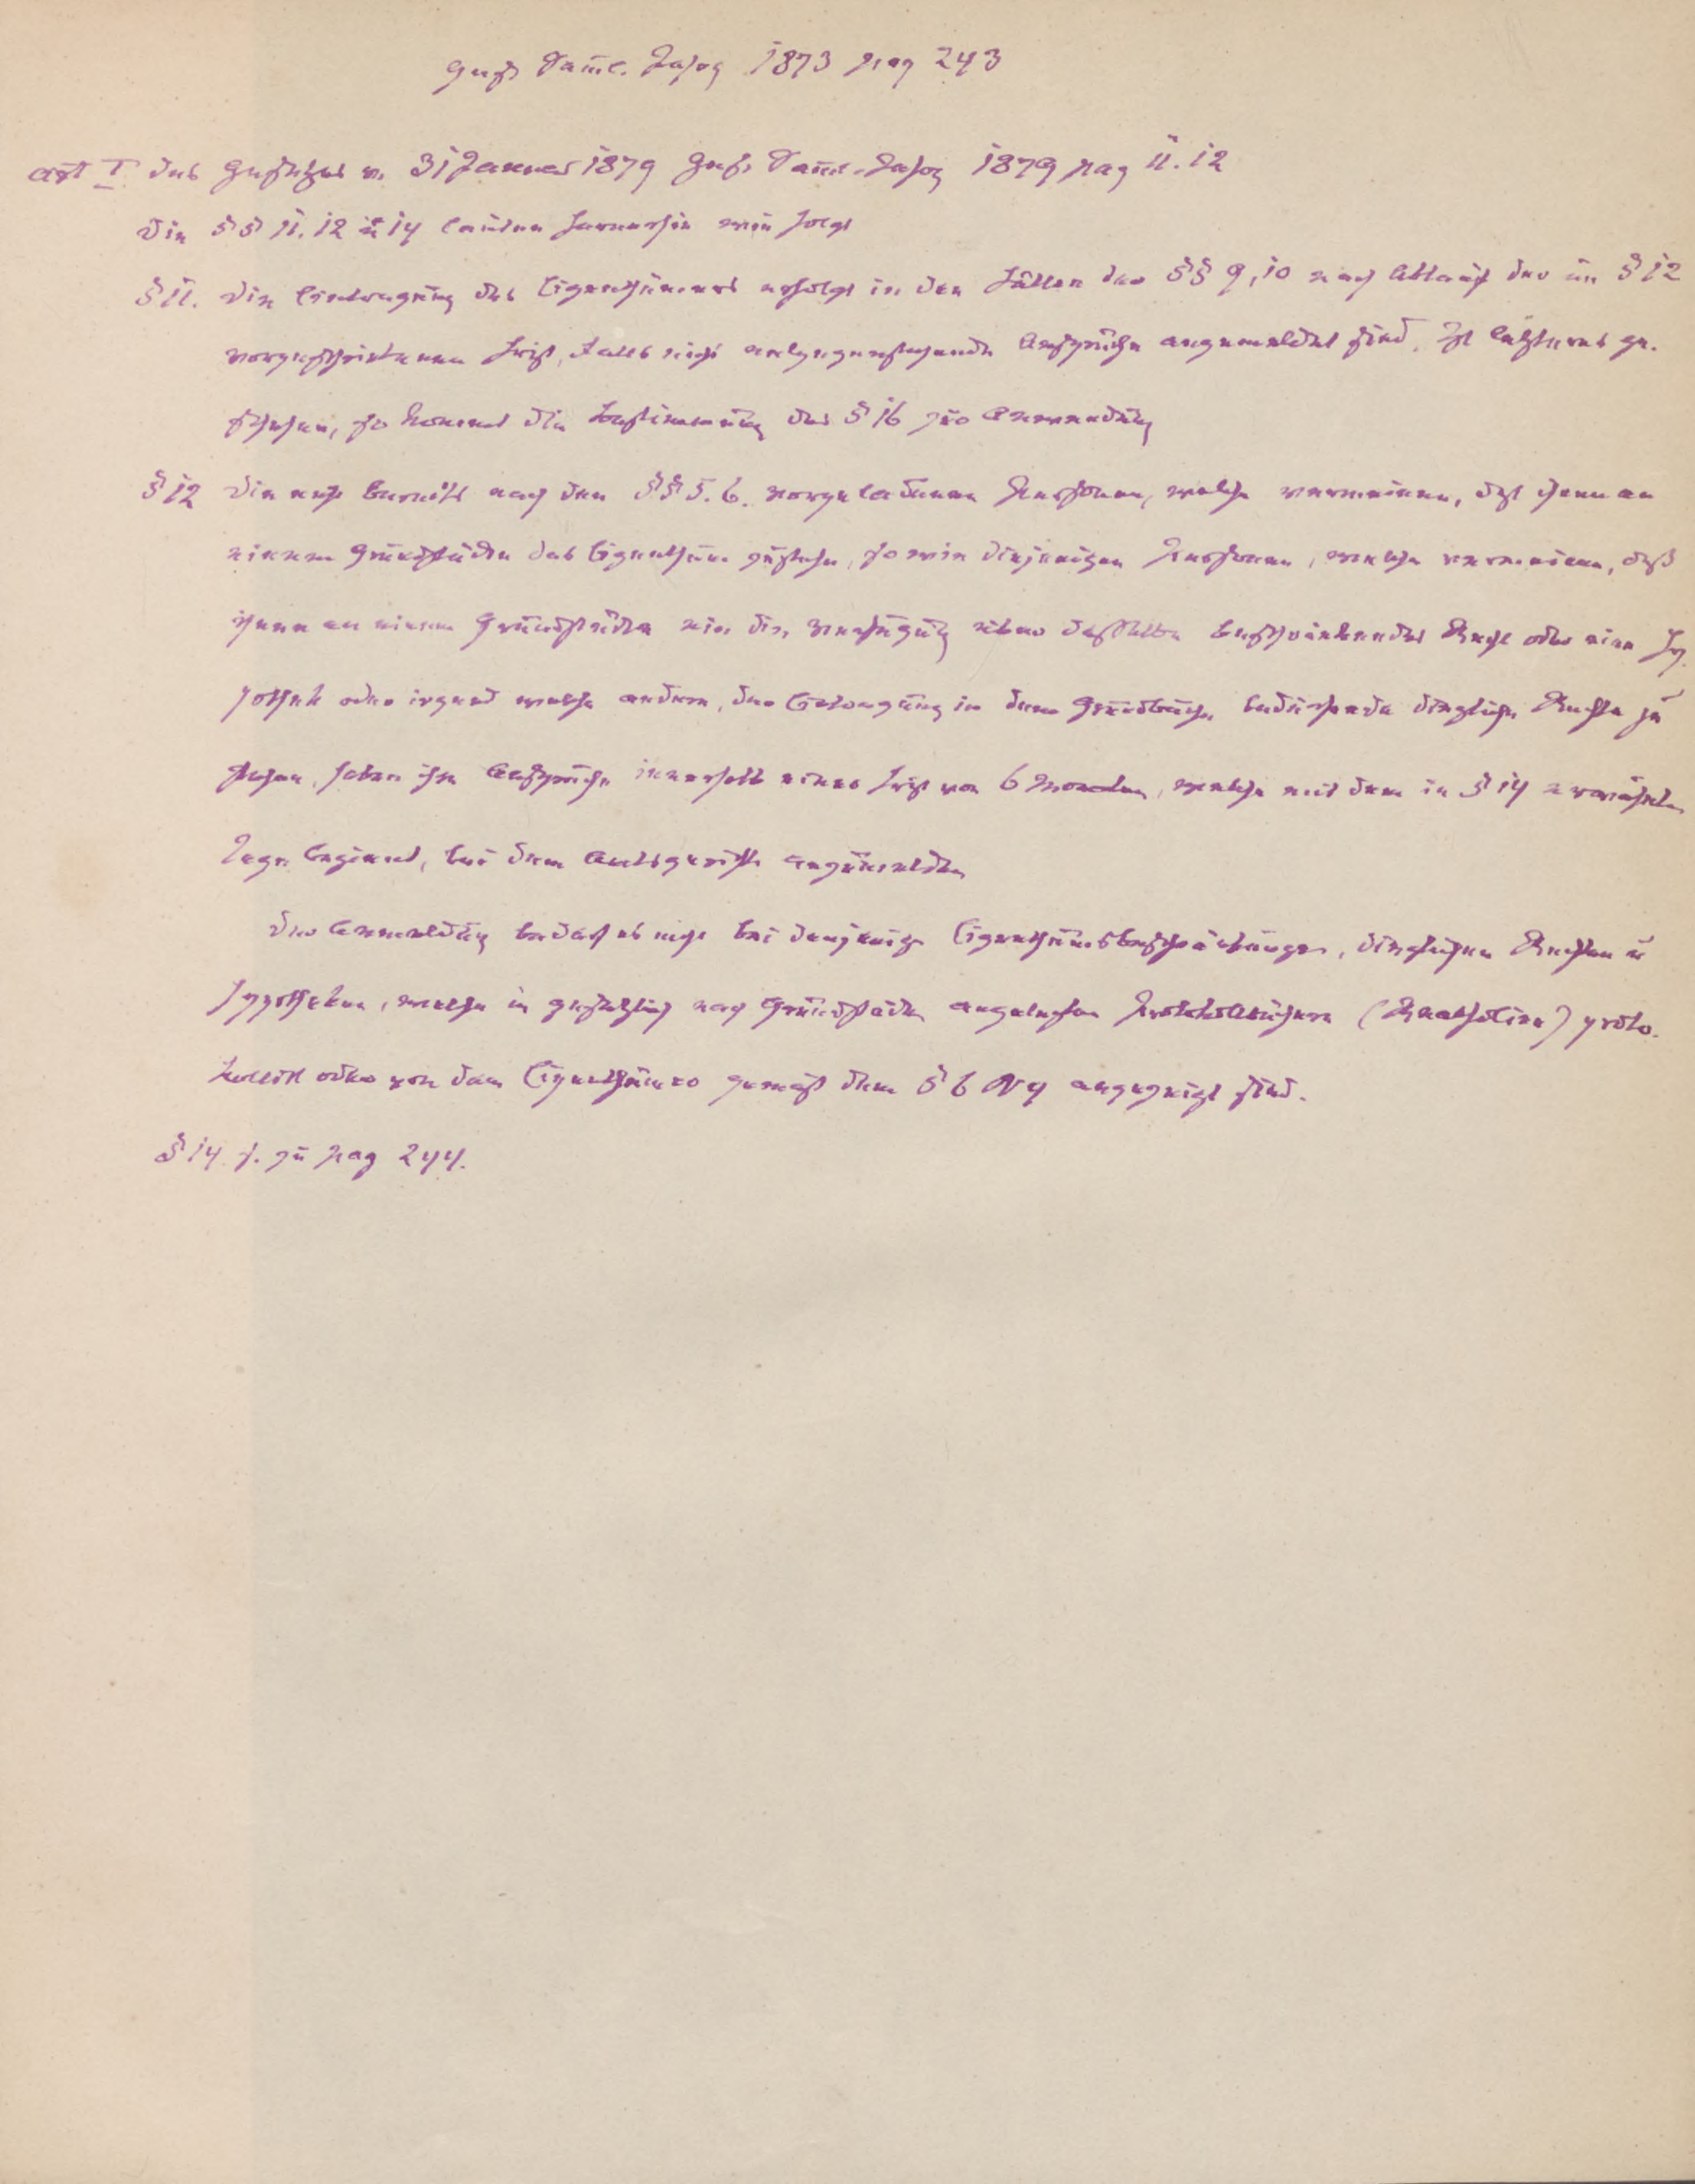 Gesetz Samml. Jahrg 1873 pag 243
Art I des Gesetzes v. 31 Januar 1879 Ges. Samml. Jahrg 1879 pag 11. 12
Die §§ 11. 12 u 14 lauten fernerhin wie folgt
§ 11. Die Eintragung des Eigenthümers erfolgt in den Fällen der §§ 9, 10 nach Ablauf der im § 12
vorgeschriebenen Frist, falls nicht entgegenstehende Ansprüche angemeldet sind. Ist letzteres ge-
schehen, so kommt die Bestimmung des § 16 zur Anwendung
§ 12 Die nicht bereits nach den §§ 5. 6. vorgeladenen Personen, welche vermeinen, daß ihnen an
einem Grundstücke das Eigenthum zustehe, sowie diejenigen Personen, welche vermeinen, daß
ihnen an einem Grundstücke ein die Verfügung über dasselbe beschränkendes Recht oder eine Hy-
pothek oder irgend welche andere, der Eintragung in dem Grundbuche bedürfende dingliche Rechte zu
stehen, haben ihre Ansprüche innerhalb einer Frist von 6 Monaten, welche mit dem in § 14 erwähnten
Tage beginnt, bei dem Amtsgerichte anzumelden
Der Anmeldung bedarf es nicht bei denjenigen Eigenthumsbeschränkungen, dinglichen Rechten u
Hypotheken, welche in gesetzlich nach Grundstücken angelegten Protokollbüchern (Realfolien) proto-
kollirt oder von dem Eigenthümer gemäß dem § 6 N 4 angezeigt sind.
§ 14. s. zu pag 244.